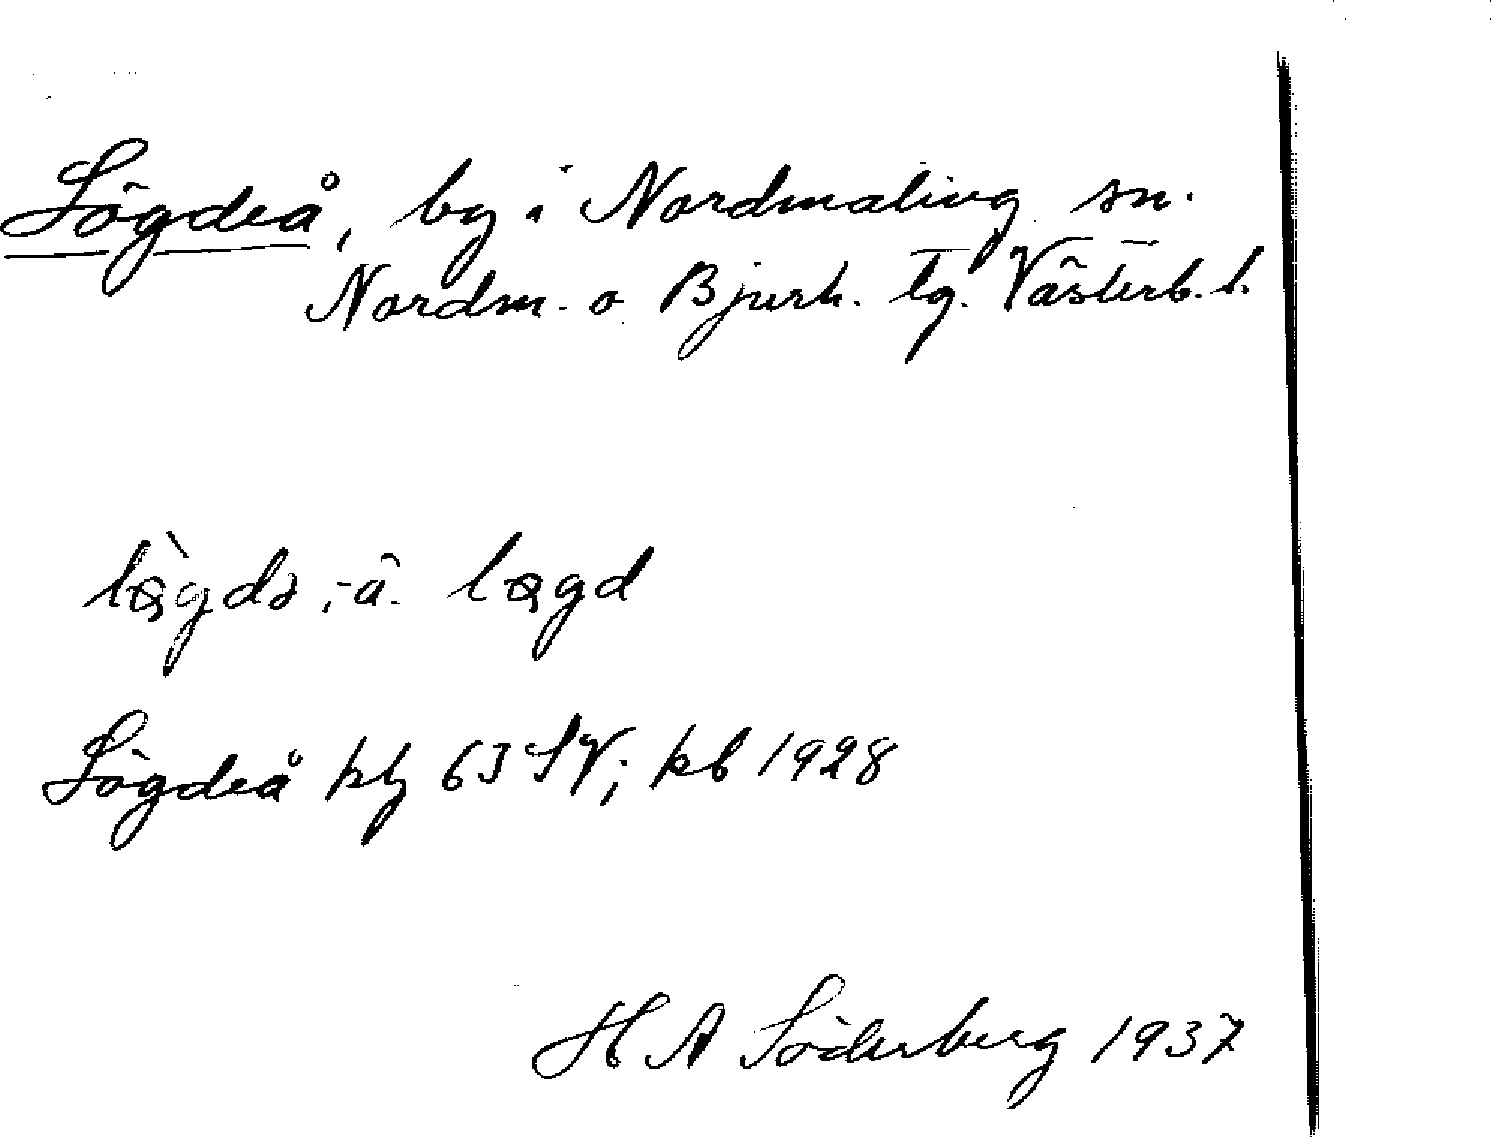 Lögdeå, by i Nordmaling sn.
Nordm. o Bjurh. tg. Västerb. l.
lö̀gdə, -å. lögd
Lögdeå kbl 63 SV; kb 1928
H A Söderberg 1937